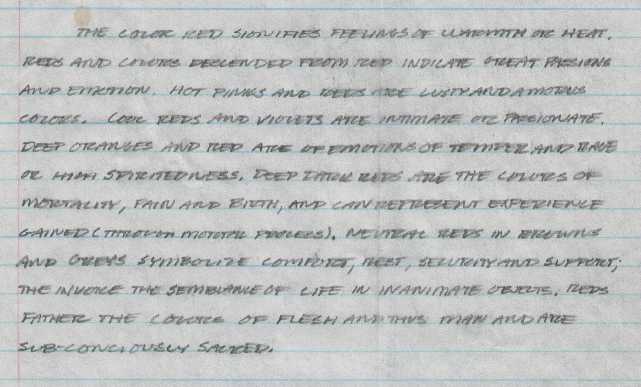 THE COLOR RED SIGNIFIES FEELINGS OF WARMTH OR HEAT.
REDS AND COLORS DESCENDED FROM RED INDICATE GREAT PASSIONS
AND EMOTION. HOT PINKS AND REDS ARE LUSTY AND AMOROUS
COLORS. COOL REDS AND VIOLETS ARE INTIMATE OR PASSIONATE.
DEEP ORANGES AND RED ARE OF EMOTIONS OF TEMPER AND RAGE
OR HIGH SPIRITEDNESS. DEEP DARK REDS ARE THE COLORS OF
MORTALITY, PAIN AND BIRTH, AND CAN REPRESENT EXPERIENCE
GAINED (THROUGH MORTAL PROCESS). NEUTRAL REDS IN BROWNS
AND GREYS SYMBOLIZE COMFORT, REST, SECURITY AND SUPPORT;
THE INVOKE THE SEMBLANCE OF LIFE IN INANIMATE OBJECTS. REDS
FATHER THE COLORS OF FLESH AND THUS MAN AND ARE
SUB-CONCIOUSLY SACRED.